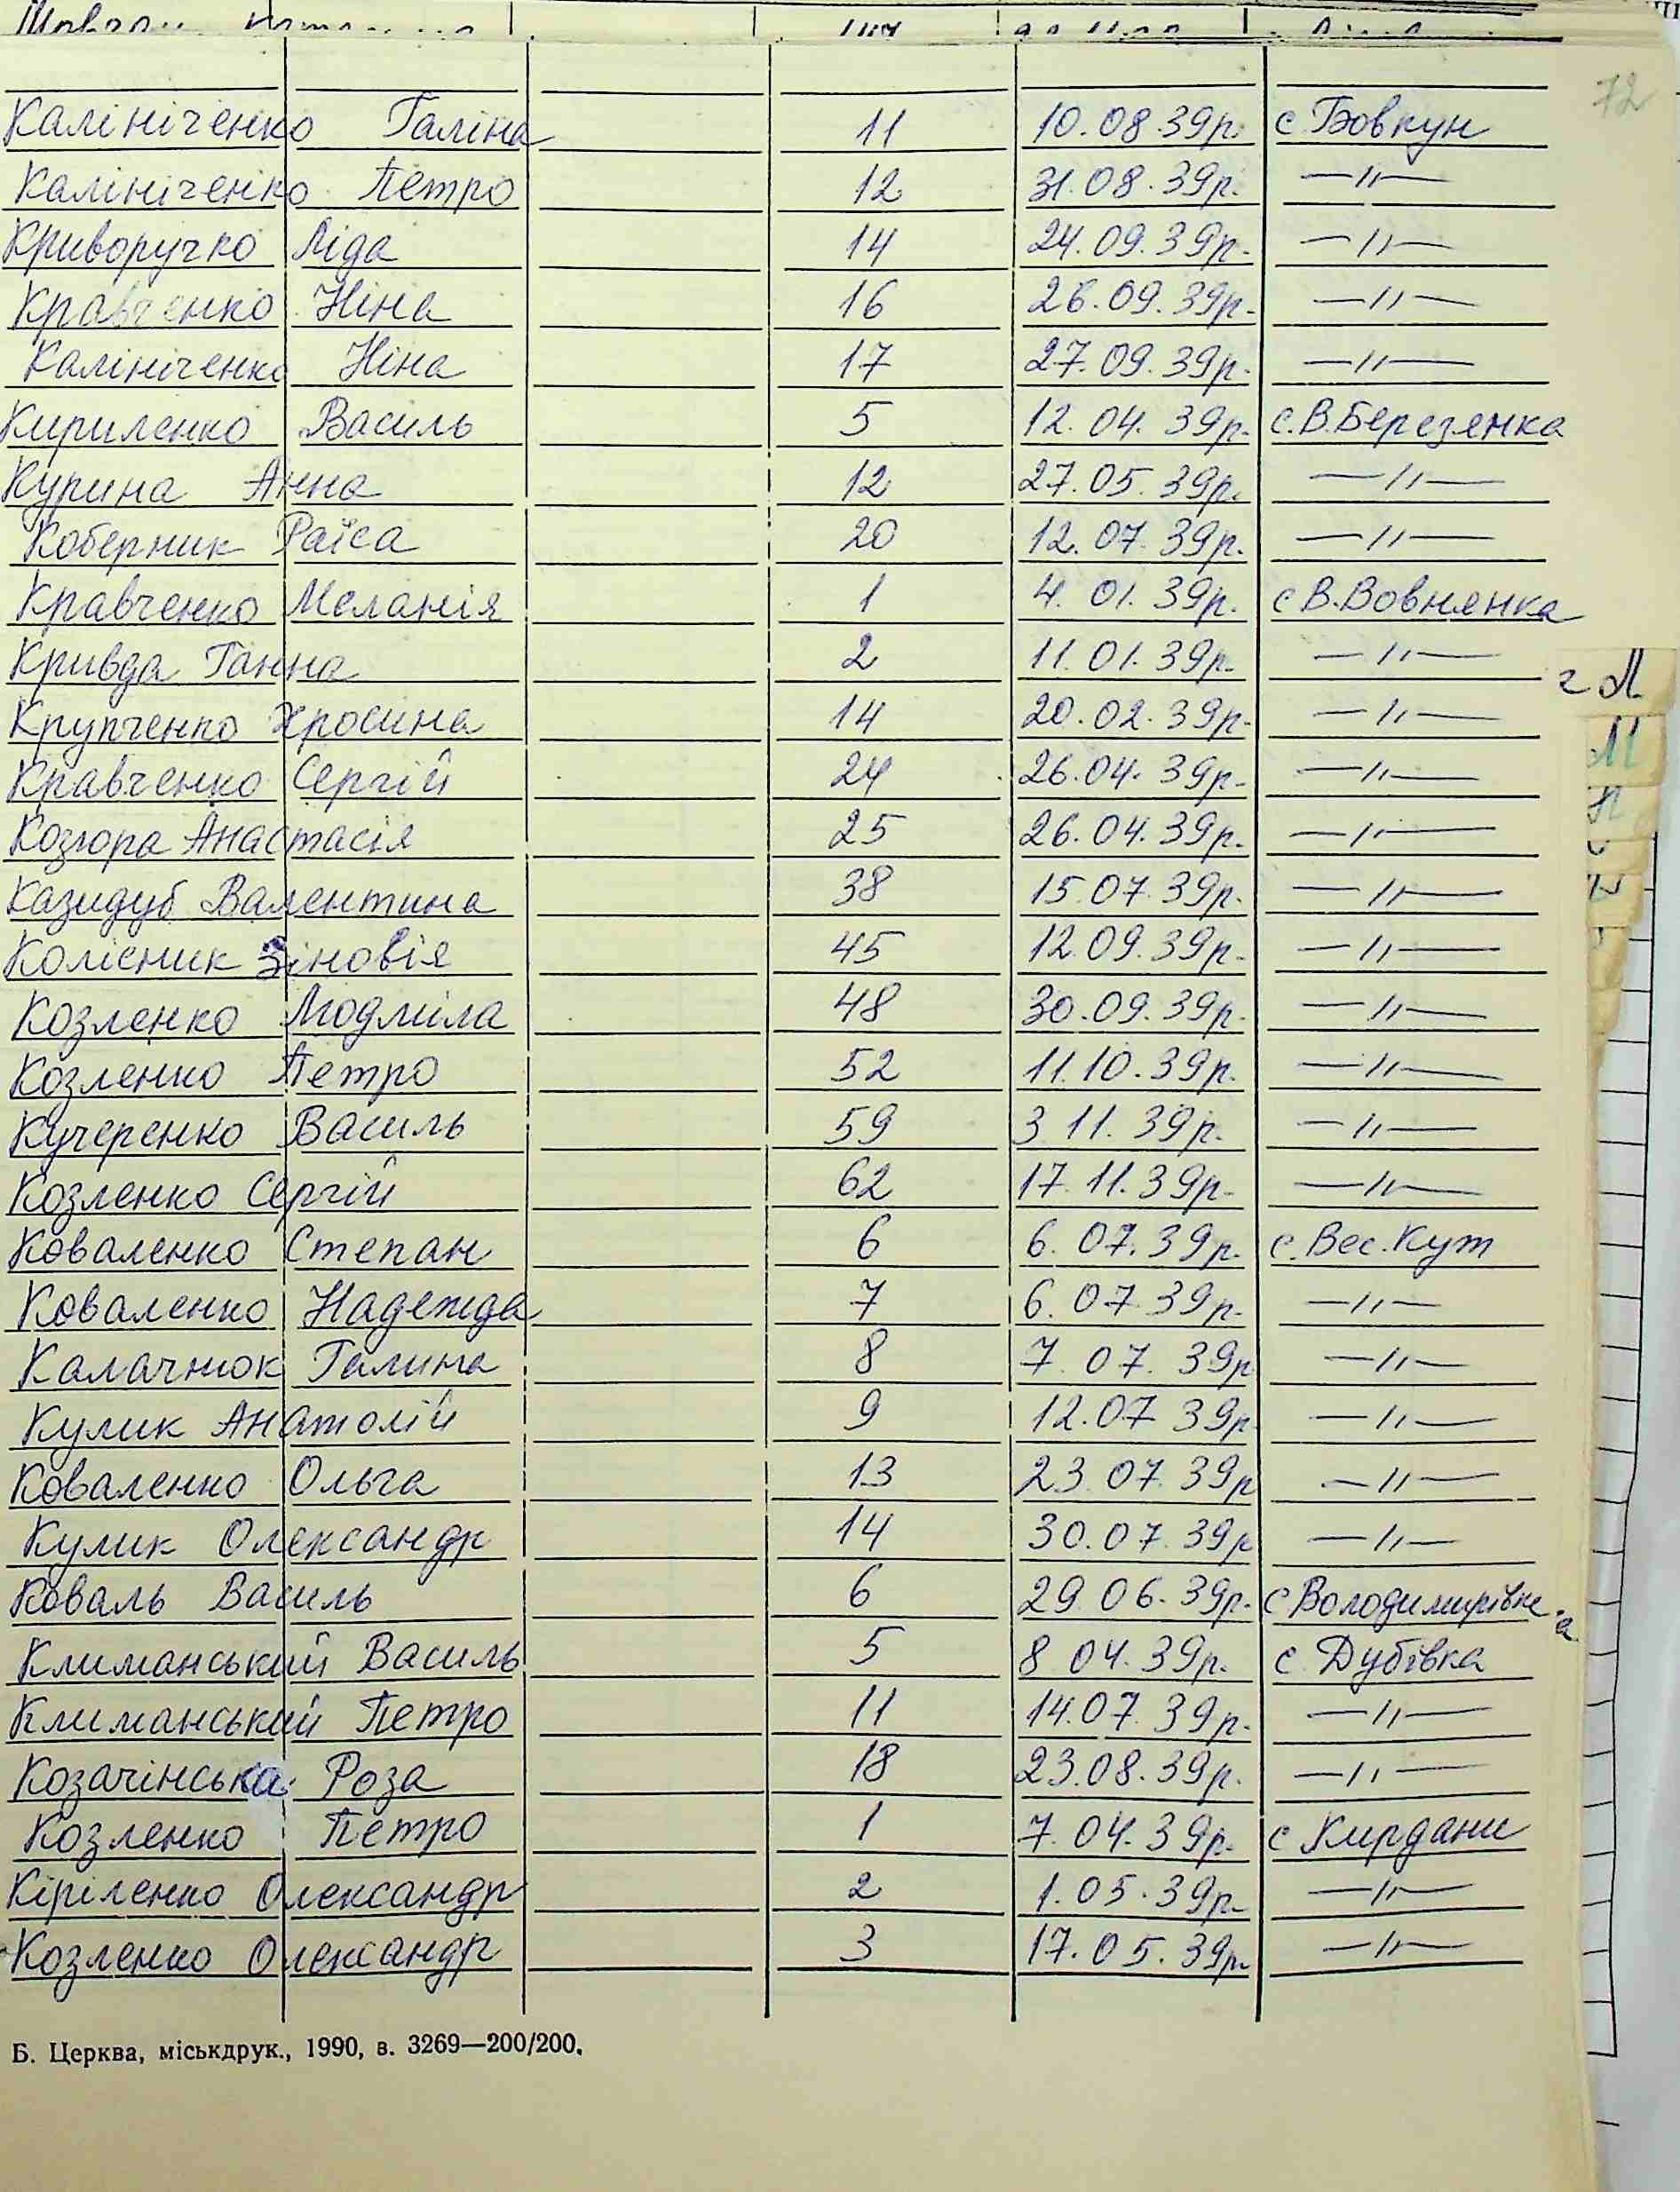 72
Калініченко Галіна 11 10.08.39р. с Бовкун
Калініченко Петро 12 31.08.39р. —〃—
Криворучко Ліда 14 24.09.39р. —〃—
Кравченко Ніна 16 26.09.39р. —〃—
Калініченко Ніна 17 27.09.39р. —〃—
Кириленко Василь 5 12.04.39р. с.В.Березянка
Курина Анна 12 27.05.39р. —〃—
Коберник Раїса 20 12.07.39р. —〃—
Кравченко Меланія 1 4.01.39р. с В.Вовнянка
Кривда Ганна 2 11.01.39р. —〃—
Крупченко Хросина 14 20.02.39р. —〃—
Кравченко Сергій 24 26.04.39р. —〃—
Козюра Анастасія 25 26.04.39р. —〃—
Казидуб Валентина 38 15.07.39р. —〃—
Колісник Зіновія 45 12.09.39р. —〃—
Козленко Людміла 48 30.09.39р. —〃—
Козленко Петро 52 11.10.39р. —〃—
Кучеренко Василь 59 3 11.39р. —〃—
Козленко Сергій 62 17.11.39р. —〃—
Коваленко Степан 6 6.07.39р. с.Вес.Кут
Коваленко Надежда 7 6.07.39р. —〃—
Калачнюк Галина 8 7.07.39р —〃—
Кулик Анатолій 9 12.07 39р. —〃—
Коваленко Ольга 13 23.07.39р —〃—
Кулик Олександр 14 30.07.39р —〃—
Коваль Василь 6 29.06.39р. с Володимирівка
Климанський Василь 5 8 04.39р. с. Дубівка
Климанський Петро 11 14.07.39р. —〃—
Козачінська Роза 18 23.08.39р. —〃—
Козленко Петро 1 7.04.39р. с Кирдани
Кіріленко Олександр 2 1.05.39р. —〃—
Козленко Олександр 3 17.05.39р. —〃—
Б. Церква, міськдрук., 1990, в. 3269—200/200.